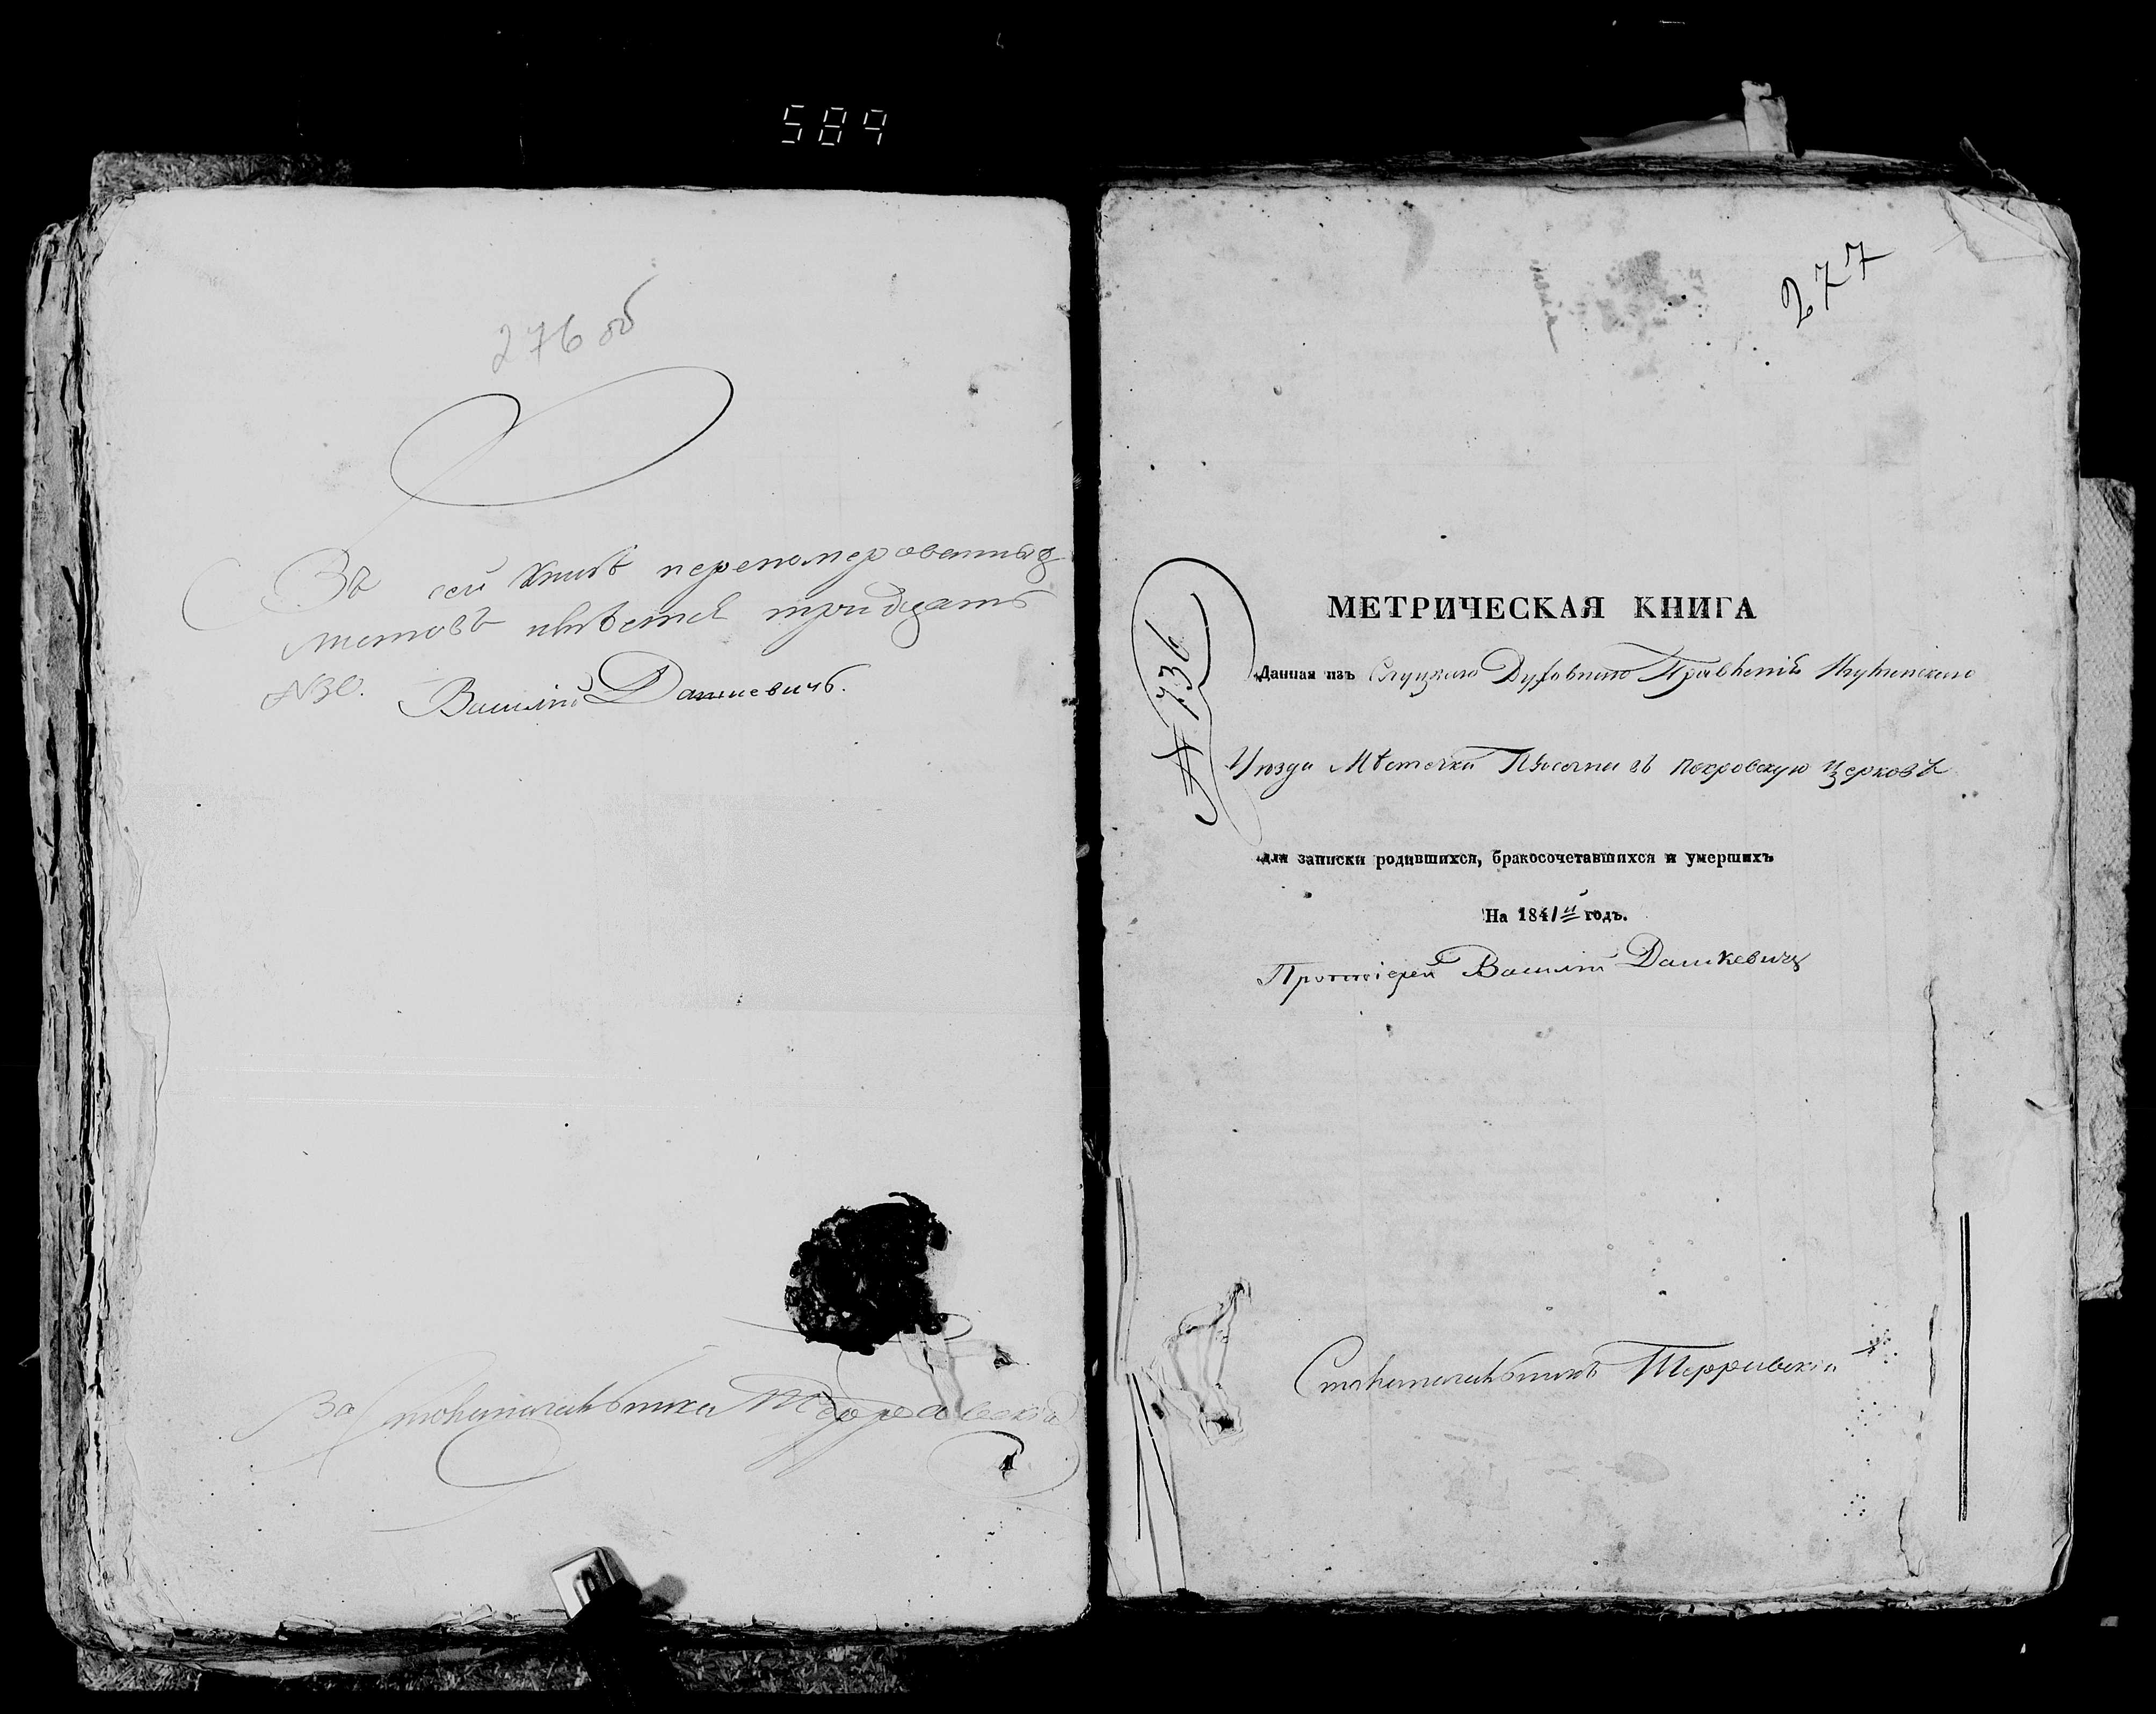 589
276 об
Въ сей книгѣ перенумерованныхъ
листовъ всѣхъ тридцать
№ 30. Василій Дашкевичъ.
За Столоначальника
277
№ 136
МЕТРИЧЕСКАЯ КНИГА
Данная изъ Слуцкого Духовного Правленія Игуменского
Уѣзда Мѣстечка Пѣсочна въ Покровскую Церковь
для записки родившихся, бракосочетавшихся и умершихъ
На 1841й годъ.
Протоіерей Василій Дашкевичъ
Столоначальникъ